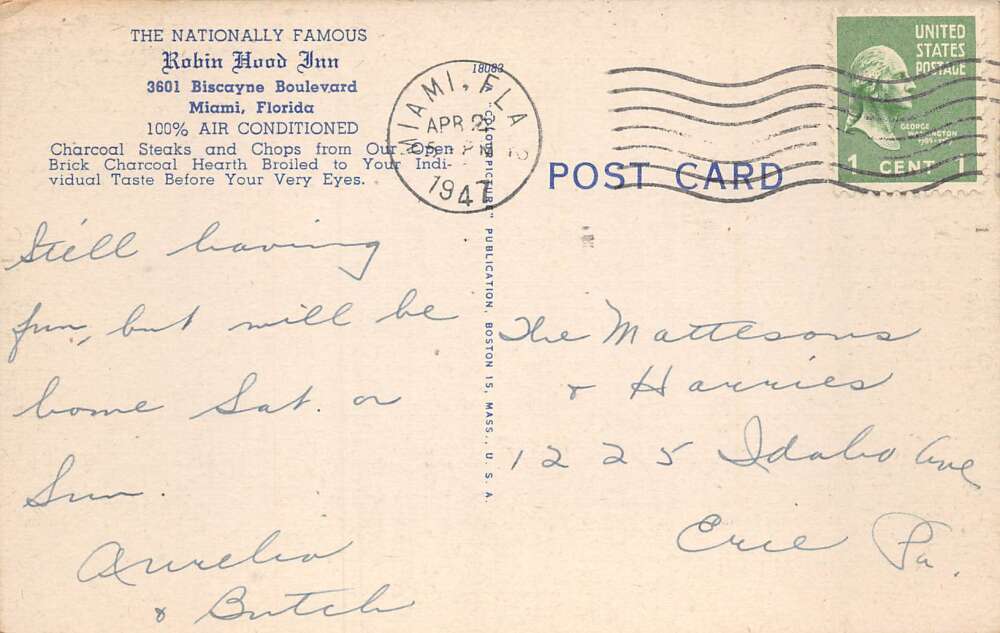 THE NATIONALLY FAMOUS
Robin Hood Inn
3601 Biscayne Boulevard
Miami, Florida
100% AIR CONDITIONED
Charcoal Steaks and Chops from Our Open
Brick Charcoal Hearth Broiled to Your Indi-
vidual Taste Before Your Very Eyes.
Still having
fun, but will be
home Sat. or
Sun.
Aurelia
& Butch
18083
A "COLORPICTURE" PUBLICATION, BOSTON 15, MASS., U. S. A.
MIAMI, FLA
APR 2
PM
1947
POST CARD
UNITED
STATES
POSTAGE
GEORGE
WASHINGTON
1 CENT 1
The Mattesons
& Harries
1225 Idaho Ave
Erie Pa.